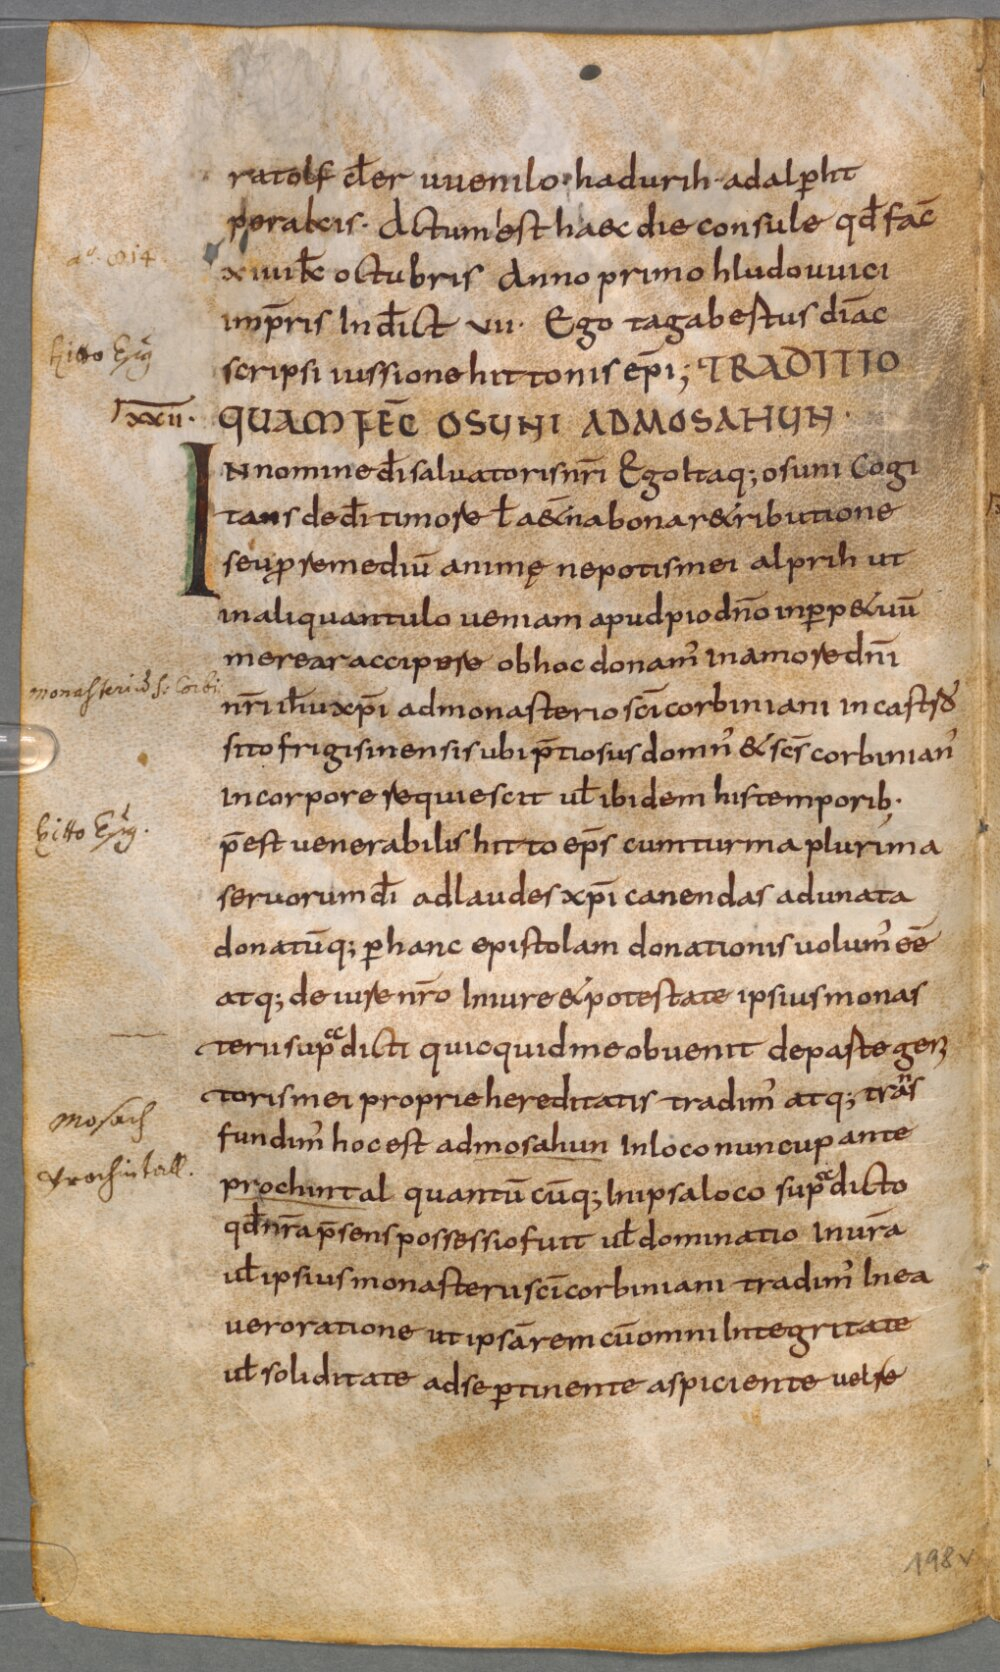 ratolf cl̄er uuenilo · hadurih · adalp̱ht
peralcis · Actum est haec die consule qd̄ fac̄
aº. 814.
xiiii kł octubris Anno primo hludouuici
imp̄ris Ind̄ict vii · Ego tagabestus diāc
Hitto Ep̄g
scripsi iussione hittonis ep̄i; TRADITIO
xxii ·
QUAM FEC̄ OSUNI AD MOSAHUN ·
IN nomine dī saluatoris nr̄i Ego itaq; osuni Cogi
tans de dī timore ł aet̄na bona retributione
seu ꝓ remediū animę nepotis mei alprih ut
in aliquantulo ueniam apud pio dn̄o in ꝑpetuū
merear accipere ob hoc donam' in amore dn̄i
monasteriū S. Corbi
nr̄i ih̄u xp̄i ad monasterio sc̄i corbiniani in castro
sito frigisinensis ubi p̄tiosus domn' & sc̄s corbinian'
in corpore requiescit uł ibidem his temporib;
Hitto Ep̄g.
p̄est uenerabilis hitto ep̄s cum turma plurima
seruorum dī ad laudes xp̄i canendas adunata
donatūq; ꝑ hanc epistolam donationis uolum' eē̄
atq; de iure nr̄o In iure & potestate ipsius monas
terii supradicti quicquid me obuenit de parte geni
toris mei proprie hereditatis tradim' atq; trans
Mosach
fundim' hoc est ad mosahun In loco nuncupante
Prochintall.
prochintal quantūcūq; In ipsa loco supradicto
qd̄ nr̄a p̄sens possessio fuit uł dominatio In ur̄a
uł ipsius monasterii sc̄i corbiniani tradim' In ea
uero ratione ut ipsā rem cū omni Integritate
uł soliditate ad se ꝑtinente aspiciente uel re
198v